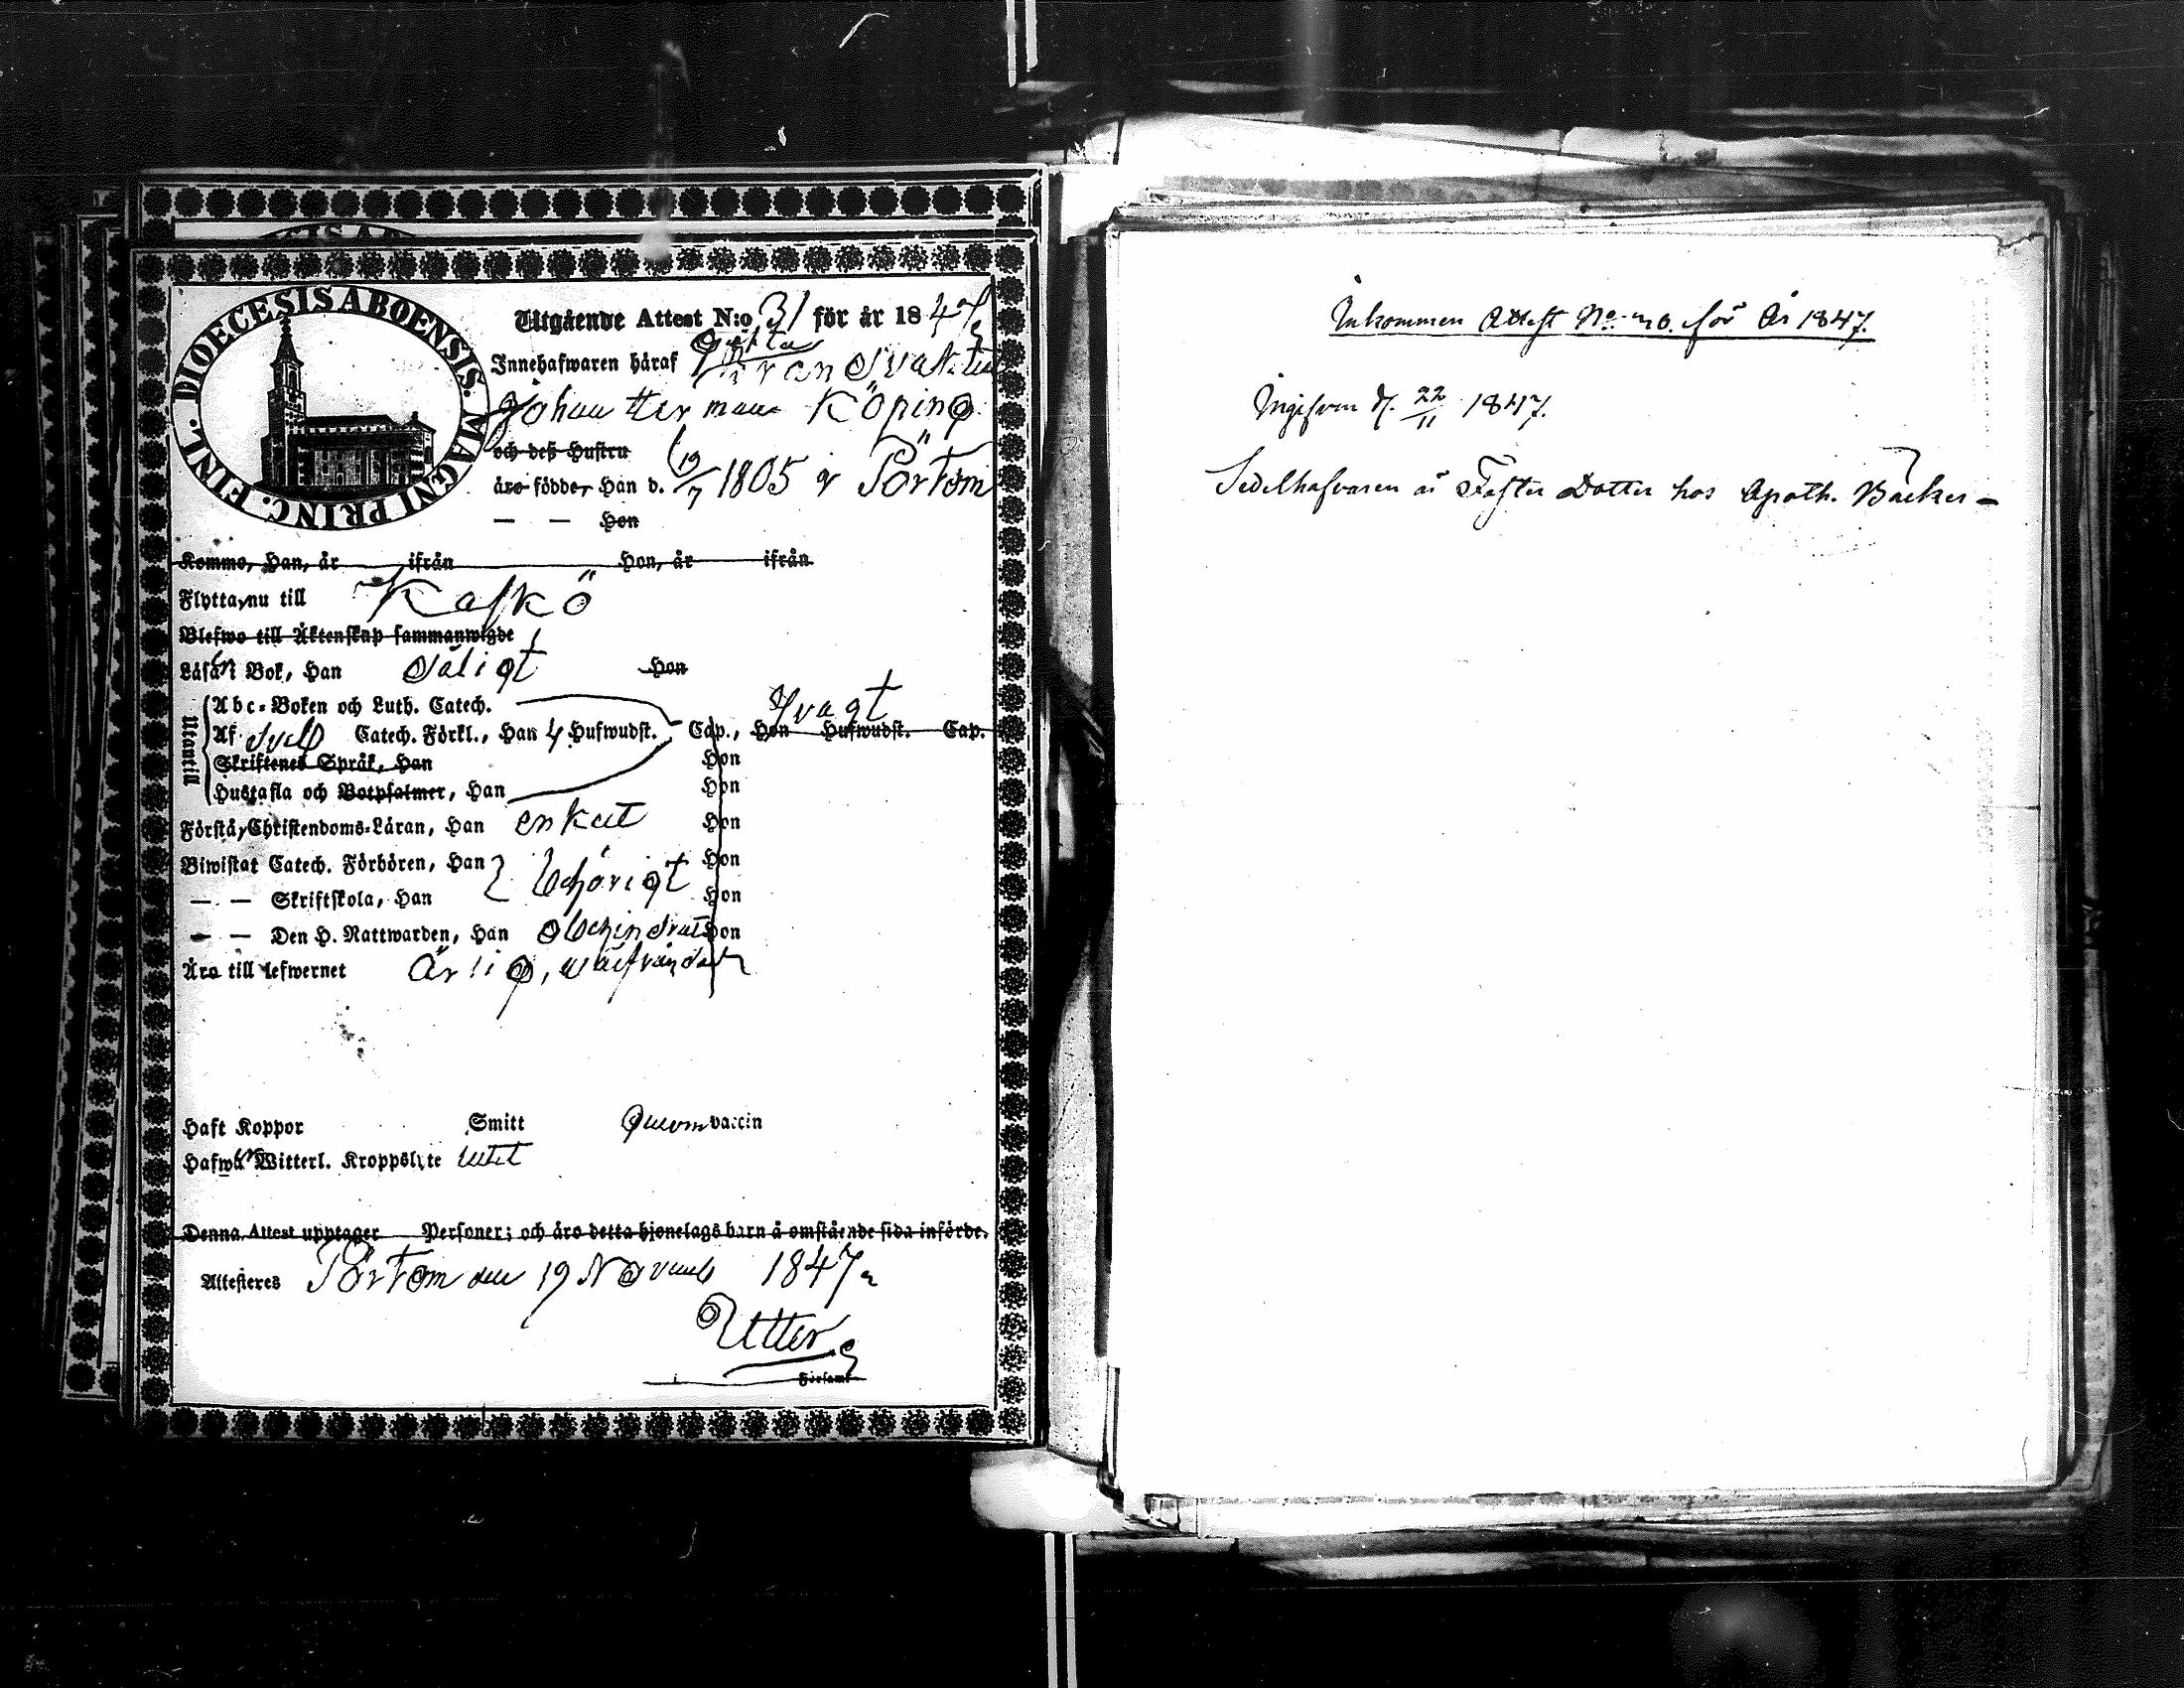 DIOECESIS ABOENSIS. MAGNI PRINC. FINL.
Utgående Attest N:o 31 för år 1847
Innehafwaren häraf
Johan Herman Köping
och deß Hustru
äro födde, Han d. 19/7 1805 i Pörtom
— — Hon
Komme, Han, år ifrån Hon, år ifrån
Flytta, nu till Kaskö
Blefwo till Äktenskap sammanwigde
Läsa i Bok, Han dåligt Hon
Utantill
Abc-Boken och Luth. Catech. svagt
Af Sveb Catech. Förkl., Han 4 Hufwudst. Cap., Hon Hufwudst. Cap.
Skriftenes Språk, Han Hon
Hustafla och Botpsalmer, Han Hon
Förstå, Christendoms-Läran, Han enkelt Hon
Biwistat Catech. Förhören, Han Hon
behörigt
— — Skriftskola, Han Hon
— — Den H. Nattwarden, Han obehindrad Hon
Äro till lefwernet ärlig, välfrejdad
Haft Koppor Smitt Genom vaccin
Hafwa Witterl. Kroppslyte intet
Denna Attest upptager Personer; och äro detta hjonelags barn å omstående sida införde.
Attesteras Pörtom den 19 Novemb 1847
Utter
Församl
Inkommen Attest No för År 1847.
Ingifven d. 22/11 1847.
Sedelhafvaren är Foster Dotter hos Apoth. Backer